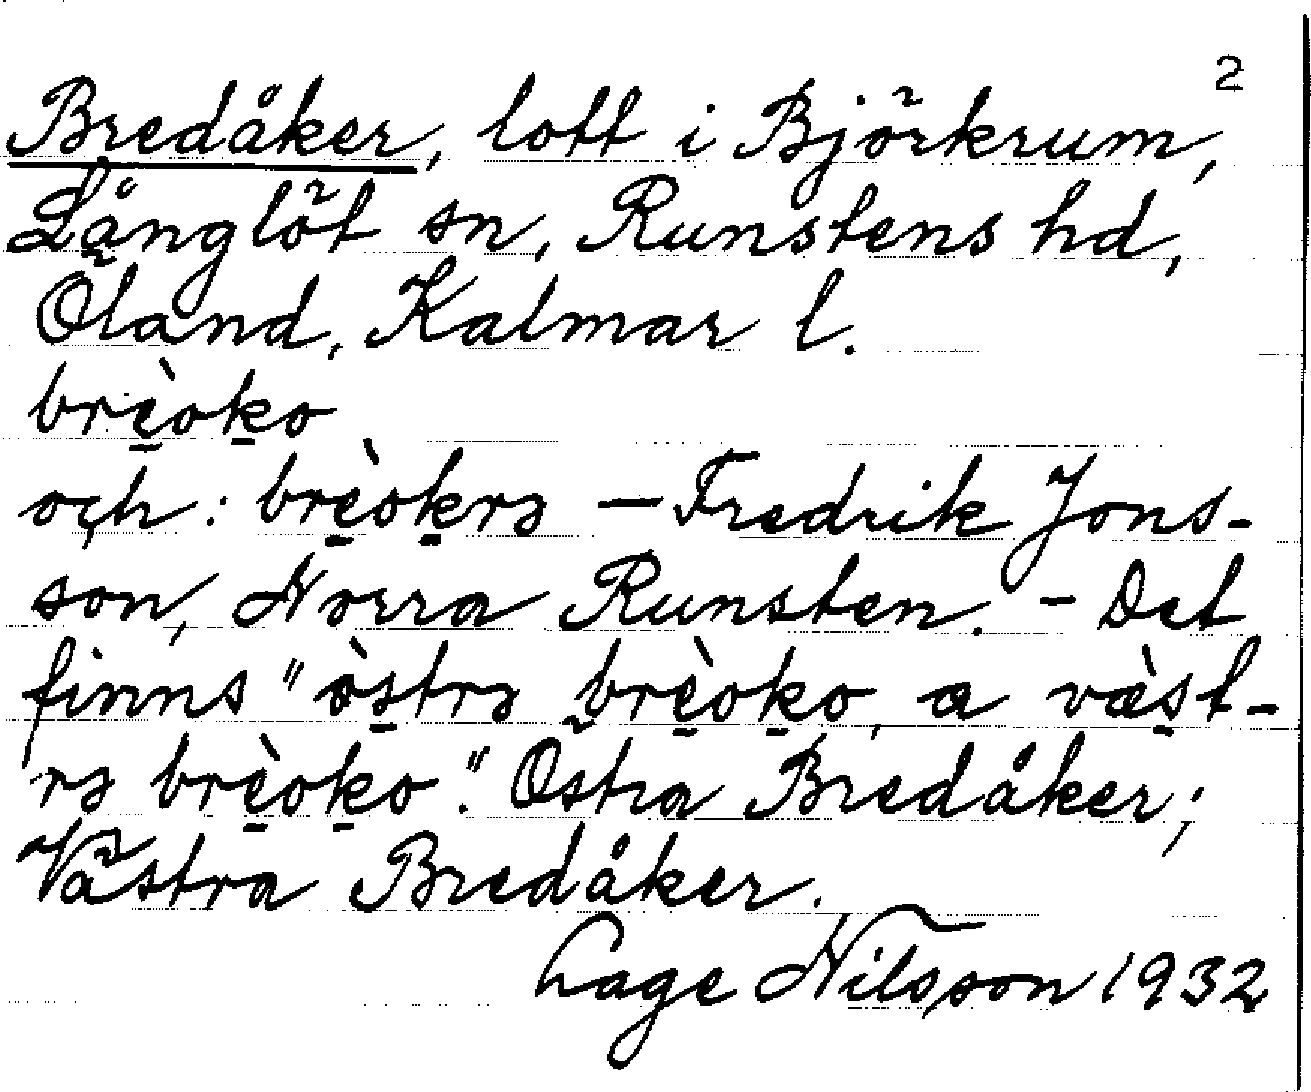 2
Bredåker, lott i Björkrum,
Långlöt sn, Runstens hd,
Öland, Kalmar l.
brèoko
och: brèokrə — Fredrik Jons-
son, Norra Runsten. - Det
finns "òstrə brèoko, a væ̀st-
rə brèoko." Östra Bredåker;
Västra Bredåker.
Lage Nilsson 1932